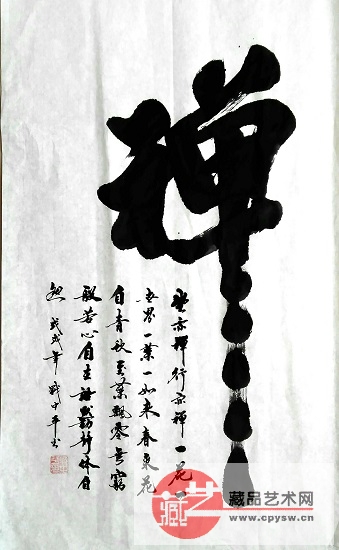 禅
坐亦禅行亦禅一花一
世界一葉一如来春来花
自青秋至葉飘零无窮
般若心自在語默動静体自
然 戊戌年 中平书
藏艺
藏品艺术网
www.cpysw.cn